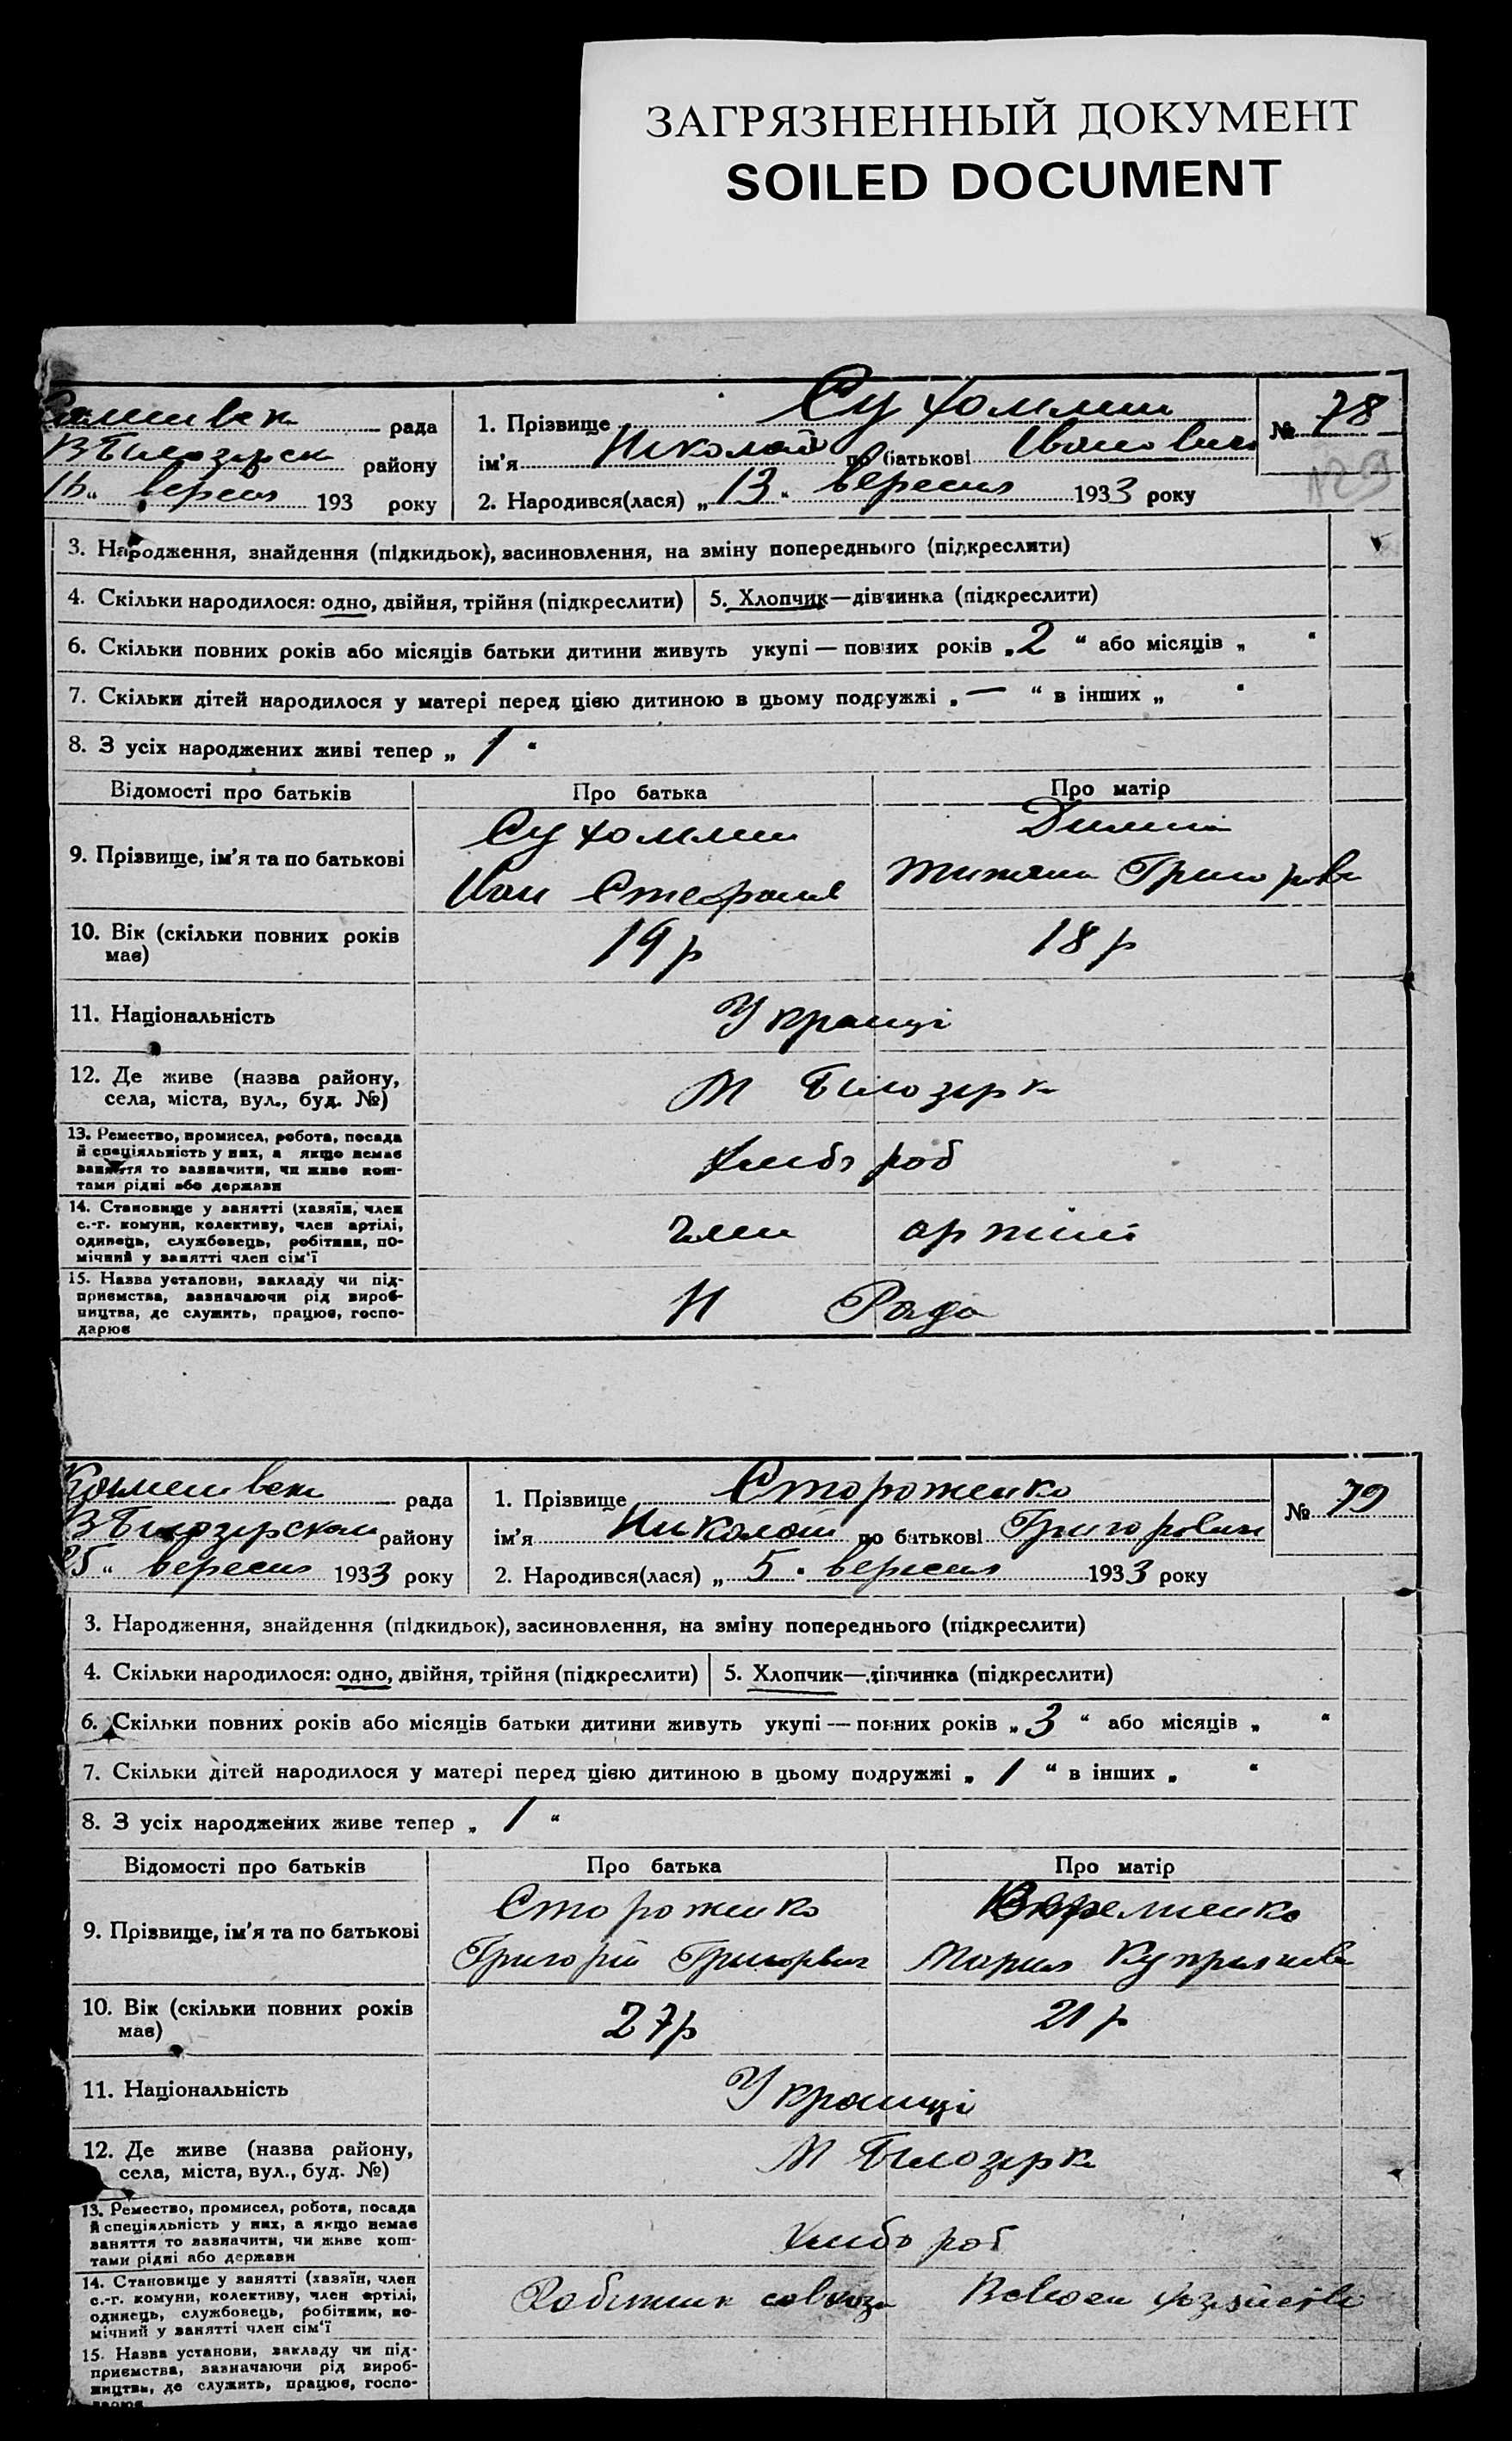 ЗАГРЯЗНЕННЫЙ ДОКУМЕНТ
SOILED DOCUMENT
рада
району
вересня 193 року
1. Прізвище Сухомлин
ім'я Николай по батькові Іванович
2. Народився(лася) „13“ вересня 1933 року
№ 78
3. Народження, знайдення (підкидьок), засиновлення, на зміну попереднього (підкреслити)
4. Скільки народилося: одно, двійня, трійня (підкреслити)
5. Хлопчик—дівчинка (підкреслити)
6. Скільки повних років або місяців батьки дитини живуть укупі — повних років „2“ або місяців „ “
7. Скільки дітей народилося у матері перед цією дитиною в цьому подружжі „—“ в інших „ “
8. З усіх народжених живі тепер „1“
Відомості про батьків
Про батька
Про матір
9. Прізвище, ім'я та по батькові
Сухомлин
Иван Стефанов
Григоров
10. Вік (скільки повних років
має)
19 р
18 р
11. Національність
Українці
12. Де живе (назва району,
села, міста, вул., буд. №)
М Білозірк
13. Ремество, промисел, робота, посада
й спеціяльність у них, а якщо немає
заняття то зазначити, чи живе кош-
тами рідні або держави
хлібороб
14. Становище у занятті (хазяїн, член
с.-г. комуни, колективу, член артілі,
одинець, службовець, робітник, по-
мічний у занятті член сім'ї
член артілі
15. Назва установи, закладу чи під-
приємства, зазначаючи рід вироб-
ництва, де служить, працює, госпо-
дарює
Н Рада
рада
району
вересня 1933 року
1. Прізвище Стороженко
ім'я Николай по батькові Григорович
2. Народився(лася) „5“ вересня 1933 року
№ 79
3. Народження, знайдення (підкидьок), засиновлення, на зміну попереднього (підкреслити)
4. Скільки народилося: одно, двійня, трійня (підкреслити)
5. Хлопчик—дівчинка (підкреслити)
6. Скільки повних років або місяців батьки дитини живуть укупі — повних років „3“ або місяців „ “
7. Скільки дітей народилося у матері перед цією дитиною в цьому подружжі „1“ в інших „ “
8. З усіх народжених живе тепер „1“
Відомості про батьків
Про батька
Про матір
9. Прізвище, ім'я та по батькові
Стороженко
Григорій Григорович
Мария
10. Вік (скільки повних років
має)
27р
21 р
11. Національність
Українці
12. Де живе (назва району,
села, міста, вул., буд. №)
М Білозірк
13. Ремество, промисел, робота, посада
й спеціяльність у них, а якщо немає
заняття то зазначити, чи живе кош-
тами рідні або держави
хлібороб
14. Становище у занятті (хазяїн, член
с.-г. комуни, колективу, член артілі,
одинець, службовець, робітник, по-
мічний у занятті член сім'ї
Робітник совхоза
15. Назва установи, закладу чи під-
приємства, зазначаючи рід вироб-
ництва, де служить, працює, госпо-